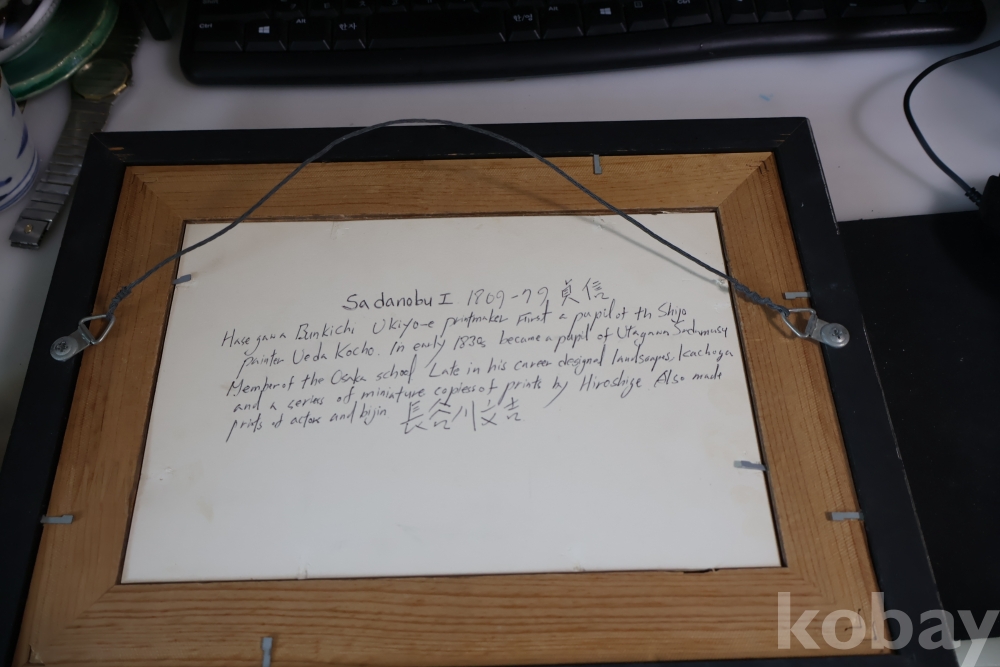 Sadanobu I 1809-79 貞信
Hasegawa Bunkichi Ukiyo-e printmaker First a pupil of th Shijo
painter Ueda Kocho. In early 1830s became a pupil of Utagawa
Memper of the Osaka school Late in his career designed landscapes, kachoga
and a series of miniature copies of prints by Hiroshige Also made
prints of actors and bijin 長谷川文吉
한자
한/영
Alt
Ctrl
kobay